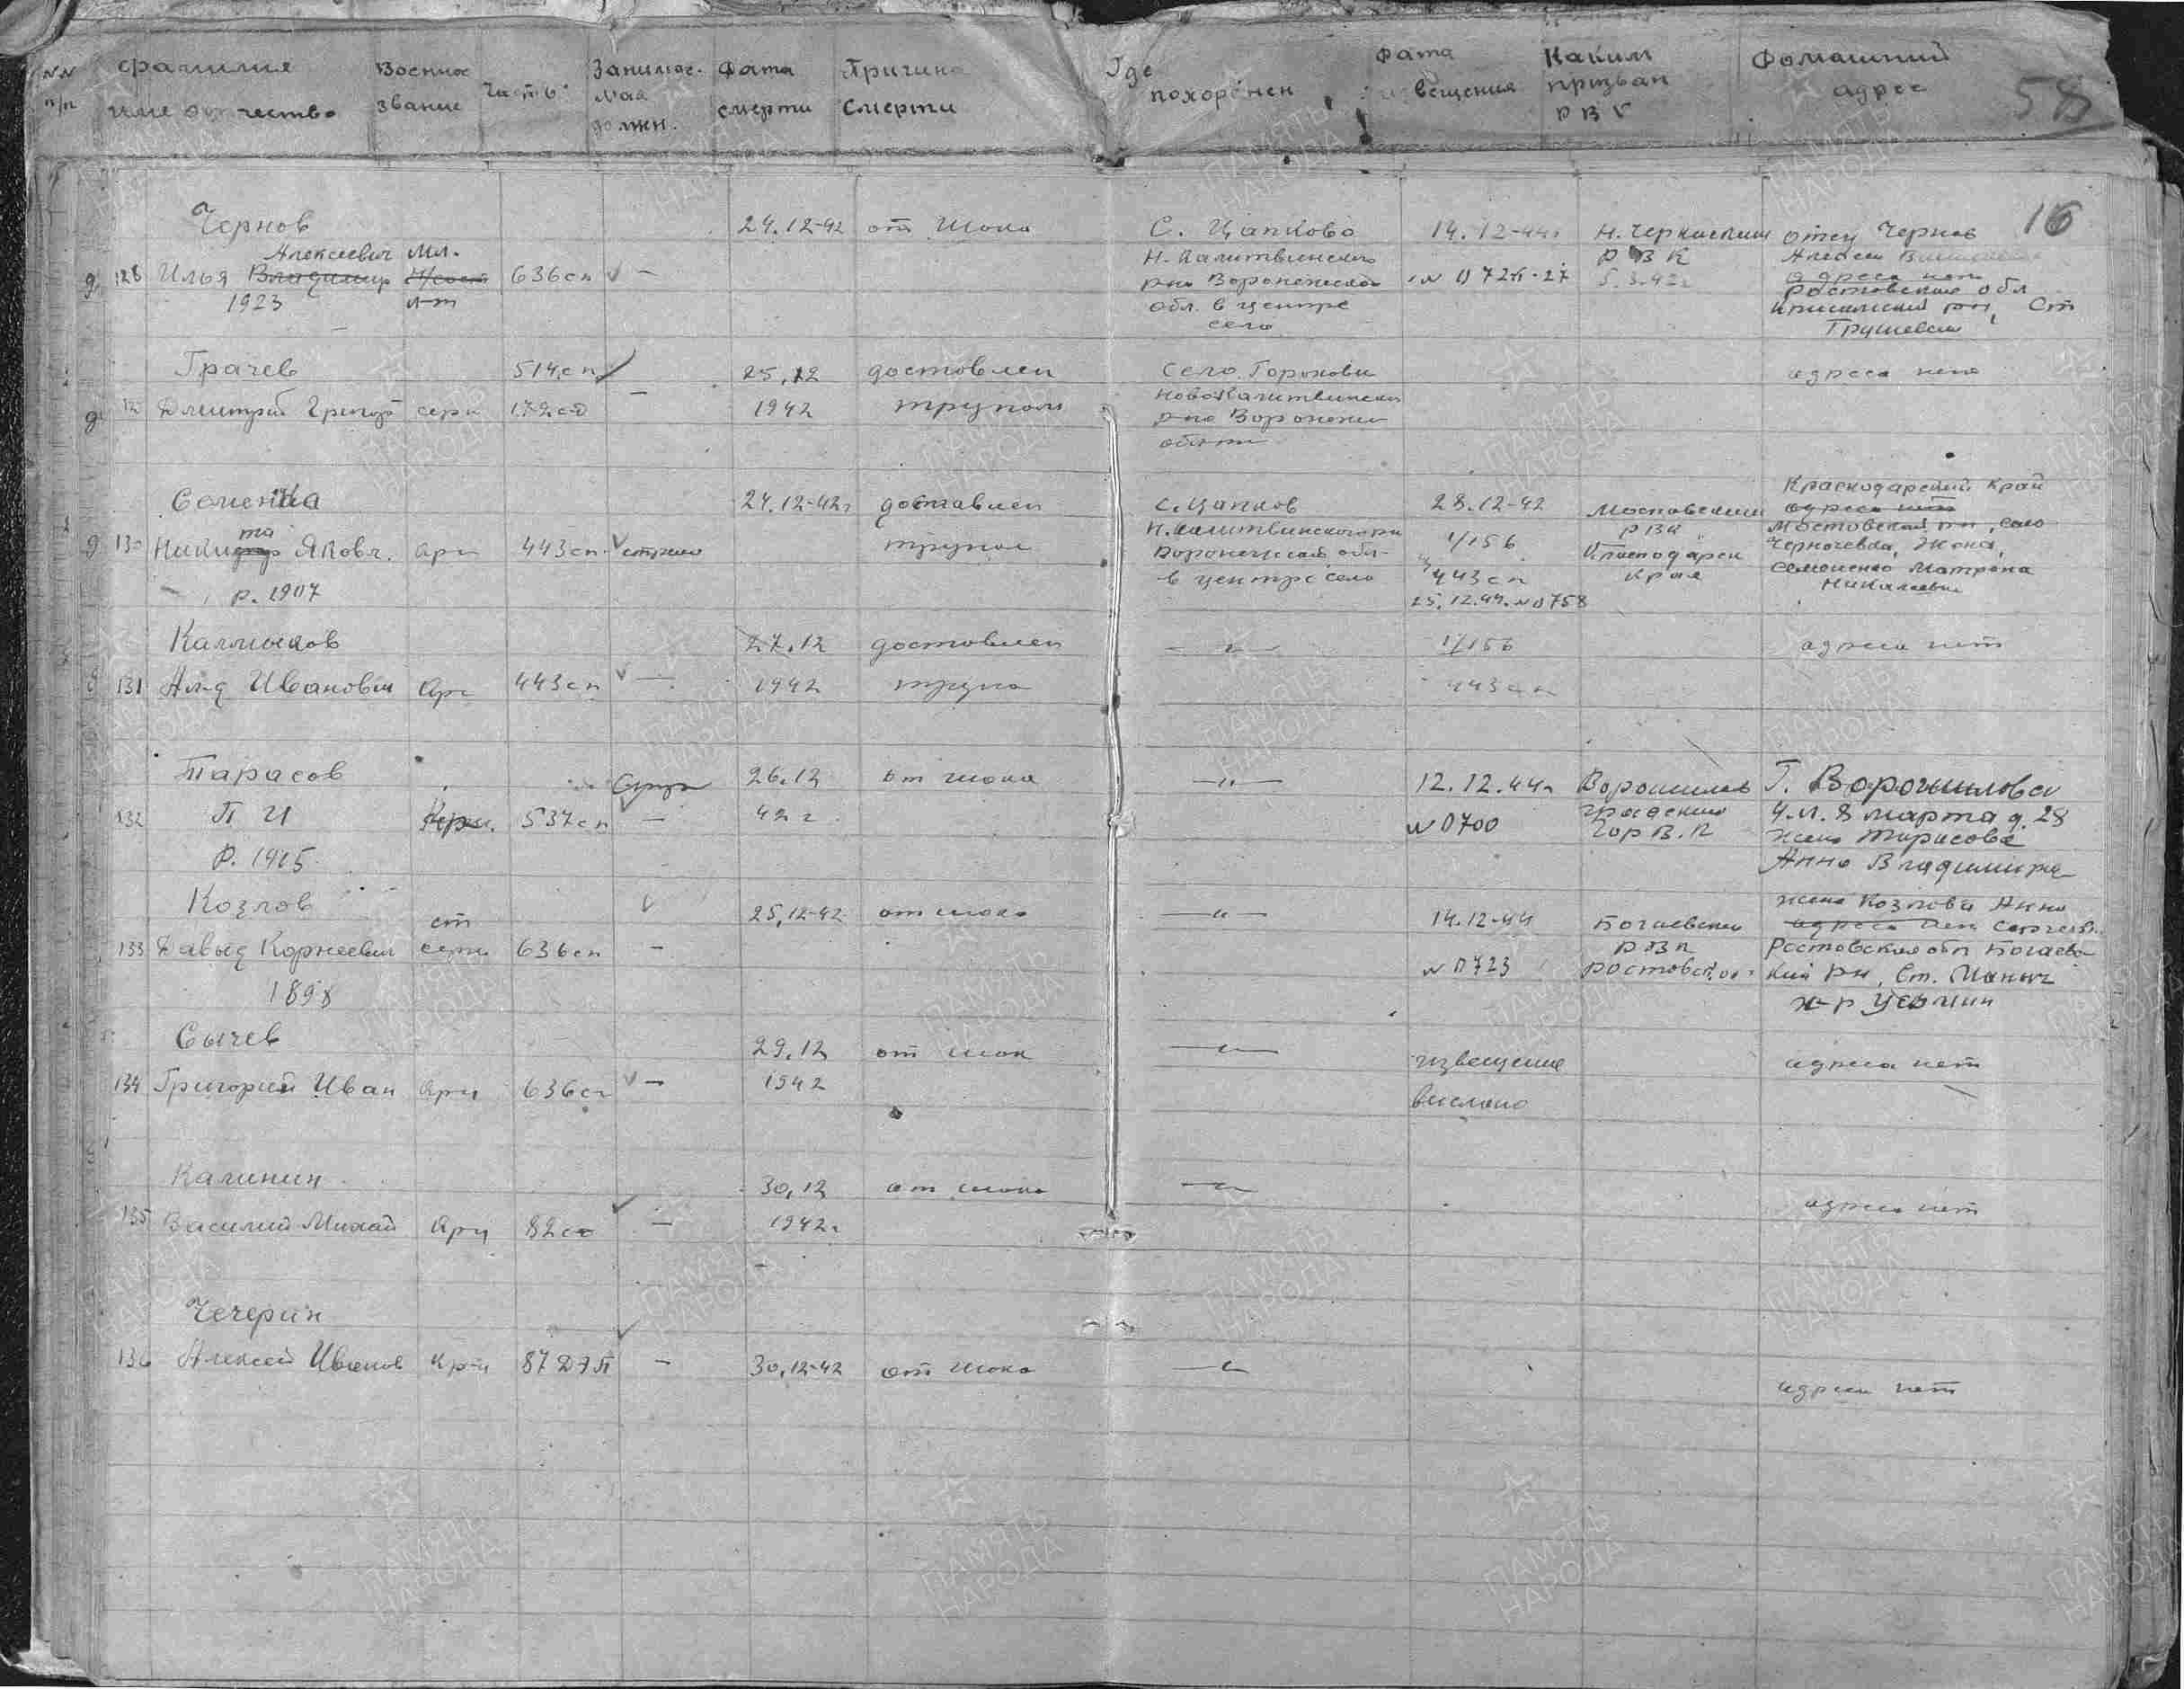 NN п/п
Фамилия имя отчество
Военное звание
Часть
Занимае- мая должн.
Дата смерти
Причина смерти
Где похоронен
Дата извещения
Каким призван РВК
Домашний адрес
58
16
Чернов
Алексеевич
128 Илья Владимир
1923
Мл.
лт
636 сп
24.12-42
от шока
С. Цапково
Н. Калитвинского
р-на Воронежской
обл. в центре
села
14.12-44г
Н. Черкасским
РВК
5.3.42г
отец Чернов
Алексей
адреса нет
Ростовская обл
Ст
Грушевская
Грачев
Дмитрий Григор
серж
514 сп
172 сд
—
25.12
1942
доставлен
трупом
Село Гороховка
Новокалитвинский
р-на Воронежской
области
адреса нет
Семенка
130 Никита Яковл.
р. 1907
443 сп
24.12-42г
доставлен
трупом
с. Цапков
Н. Калитвинского р-н
Воронежской обл-
в центре села
28.12-42
1/156
443 сп
25.12.44. №0758
Мостовским
РВК
Краснодарск
края
Краснодарский край
адреса нет
Мостовской рн, село
Жена,
Семененко Матрена
Николаевна
Калмыков
131 Иванович
443 сп
—
27.12
1942
доставлен
трупом
— " —
1/156
443 сп
адреса нет
Тарасов
132 П И
Р. 1915
537 сп
—
26.12
42 г
от шока
— " —
12.12.44г
№0700
Ворошилов
градским
Гор В. К
Г. Ворошиловск
ул. 8 марта д. 28
жена Тарасова
Анна Владимира
Козлов
133 Давыд Корнеевич
1898
ст
серж
636 сп
—
25.12-42
от шока
— " —
14.12-44
№0723
Богаевским
РВК
Ростовск. об.
жена Козлова Анна
адреса нет Сергеевн.
Ростовская обл Богаевс-
кий рн, Ст. Маныч
х-р Усьман
Сычев
134 Григорий Иван
636 сп
—
29.12
1942
от шок
— " —
извещение
выслано
адреса нет
Калинин
135 Василий Михай
82 сп
—
30.12
1942г
от шока
— " —
адреса нет
Чечерин
136 Алексей Иванов
кр-ц
87 ДЭП
—
30.12-42
от шока
— " —
адреса нет
ПАМЯТЬ НАРОДА